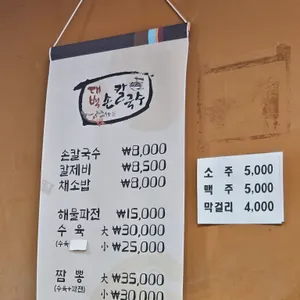 대박
손칼국수
손칼국수 ₩8,000
칼제비 ₩8,500
채소밥 ₩8,000
해물파전 ₩15,000
수육 大 ₩30,000
(수육 小 ₩25,000
짬뽕 大 ₩35,000
(수육+파전) 小 ₩30,000
소주 5,000
맥주 5,000
막걸리 4,000